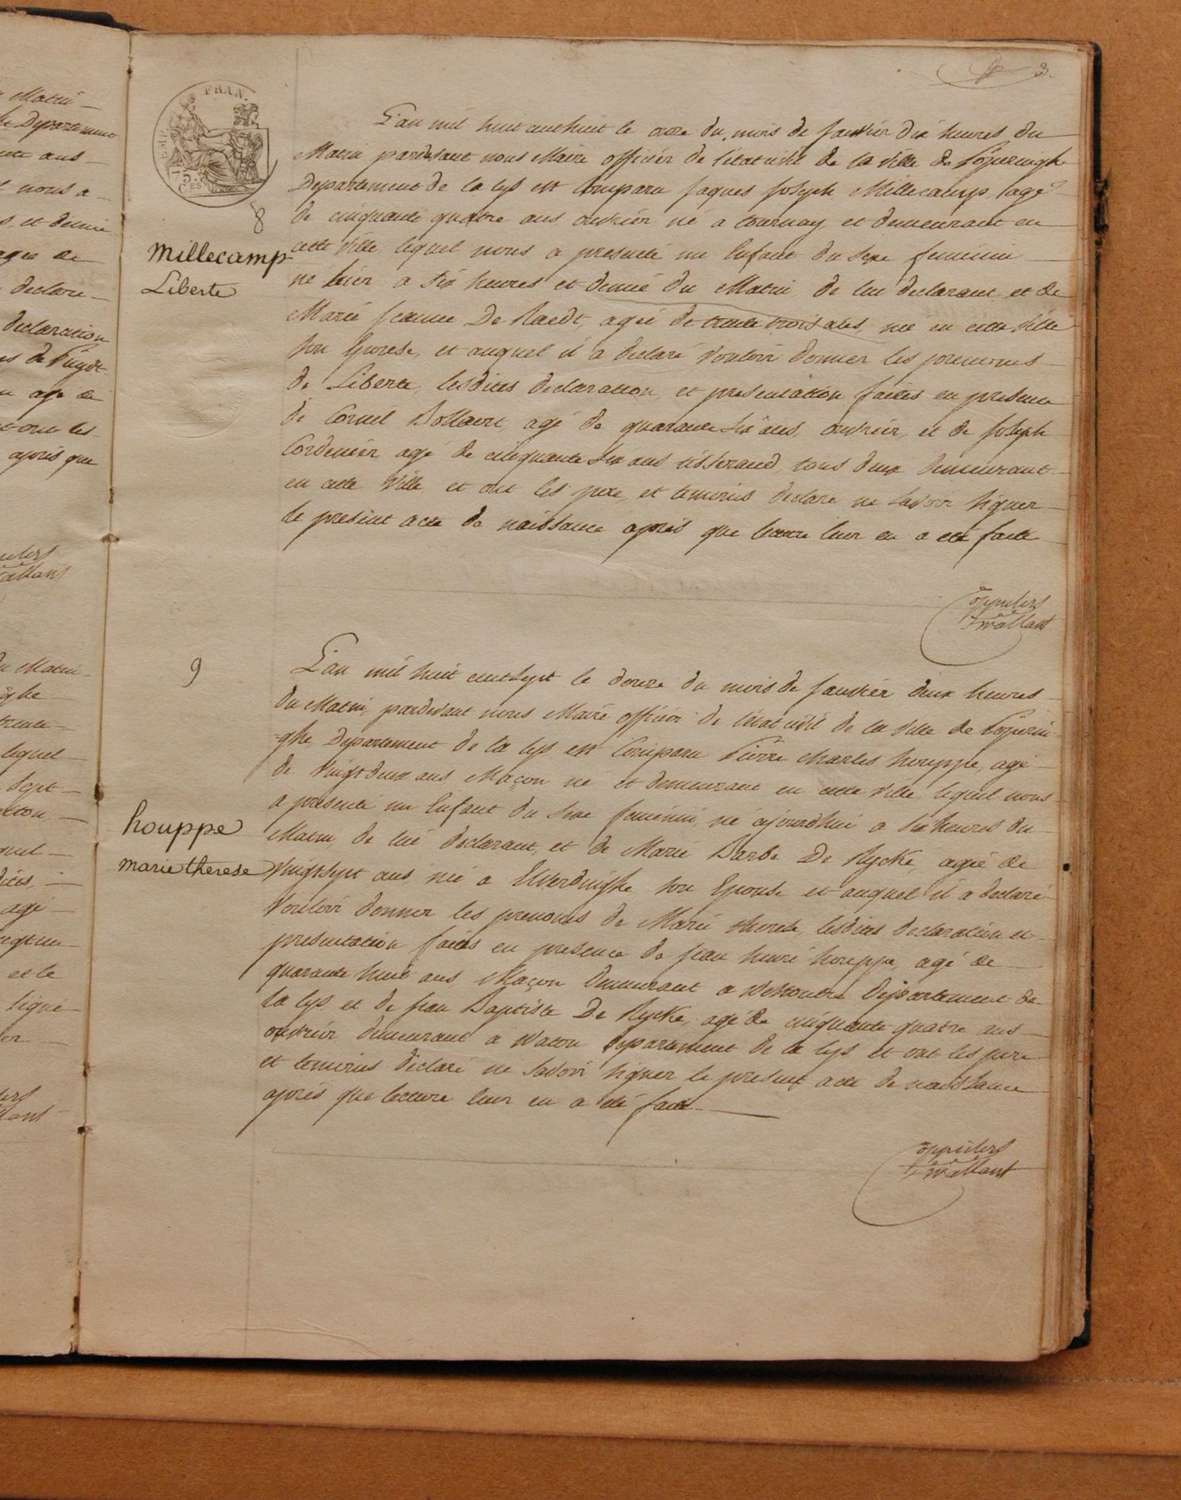 3.
8
Millecamp
Liberte
L'an mil huit cent huit le onze du mois de Janvier dix heures du
Matin pardevant nous Maire officier de l'etat civil de la ville de Poperingh
Departement de la Lys est comparu Jaques Joseph Millecamp agé
de cinquante quatre ans ouvrier né a tournay et demeurant en
cette ville lequel nous a presenté un Enfant du sexe feminin
né hier a six heures et demie du Matin de lui declarant et de
Marie Jeanne De Raedt agée de trente trois ans née en cette ville
son Epouse, et auquel il a declaré vouloir donner les prenoms
de Liberte, lesdites declaration et presentation faites en presence
de Cornel Bollaert agé de quarante six ans ouvrier, et de Joseph
Cordenier agé de cinquante six ans tisserand tous deux demeurant
en cette ville et ont les pere et temoins declaré ne savoir signer
le present acte de naissance après que lecture leur en a eté faite
9
houppe
marie therese
L'an mil huit cent sept le douze du mois de Janvier deux heures
du Matin, pardevant nous Maire officier de l'état civil de la ville de Poperin
ghe Departement de la Lys est Comparu Pierre Charles houppe, agé
de vingt deux ans Maçon né et demeurant en cette ville lequel nous
a presenté un Enfant du sexe feminin, né ajourdhui a six heures du
Matin de lui declarant, et de Marie Barbe De Rycke, agée de
vingt sept ans née a Elverdinghe son Epouse et auquel il a declaré
vouloir donner les prenoms de Marie therese, lesdites declaration et
presentation faites en presence de Jean henri houppe, agé de
quarante huit ans Maçon demeurant a Westoutre Departement de
la Lys et de Jean Baptiste De Rycke, agé de cinquante quatre ans
ouvrier demeurant a Watou departement de la Lys et ont les pere
et temoins declaré ne savoir signer le present acte de naissance
après que lecture leur en a été faite